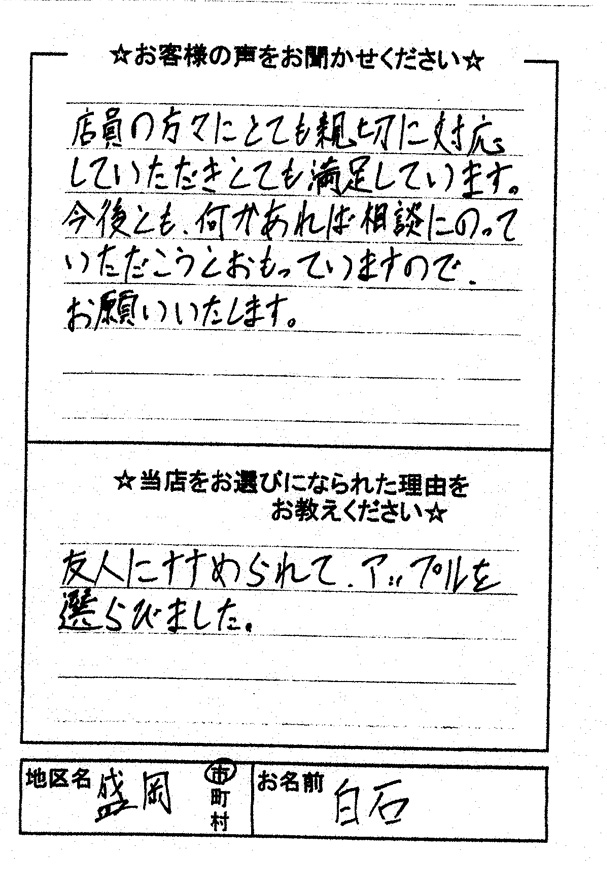 ☆お客様の声をお聞かせください☆
店員の方々にとても親切に対応
していただきとても満足しています。
今後とも、何かあれば相談にのって
いただこうとおもっていますので、
お願いいたします。
☆当店をお選びになられた理由を
お教えください☆
友人にすすめられて、アップルを
選らびました。
地区名 盛岡 市
町
村
お名前 白石